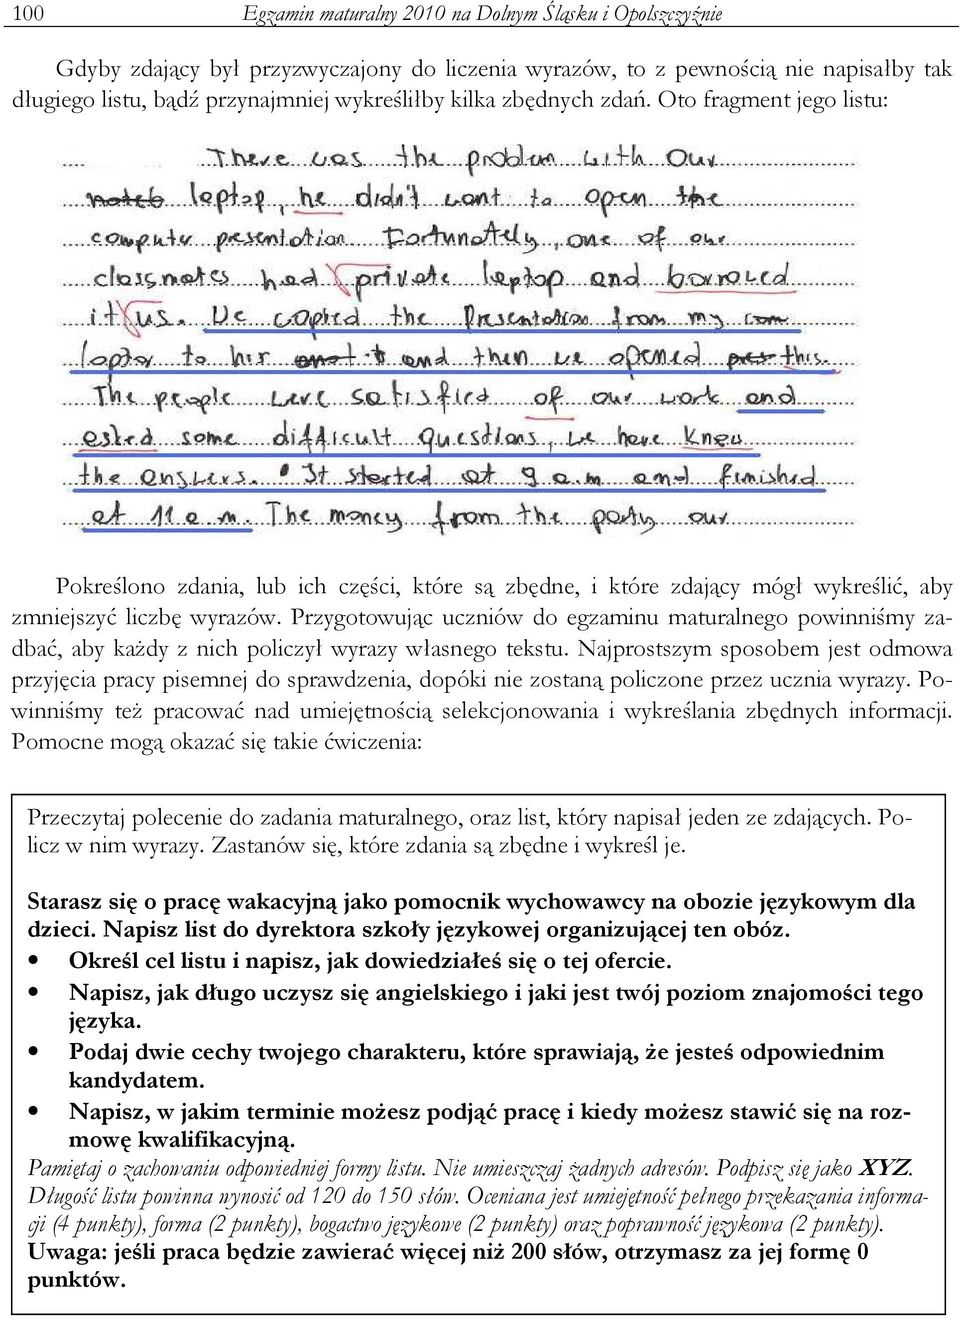 100 Egzamin maturalny 2010 na Dolnym Śląsku i Opolszczyźnie
Gdyby zdający był przyzwyczajony do liczenia wyrazów, to z pewnością nie napisałby tak
długiego listu, bądź przynajmniej wykreśliłby kilka zbędnych zdań. Oto fragment jego listu:
There was the problem with our
laptop, he didn't want to open the
computer presentation Fortunately, one of our
classmates had private laptop and borrowed
it us. We copied the presentation from my
laptop to her and then we opened this.
The people were satisfied of our work and
asked some difficult questions, we have knew
the answers. It started at 9 a.m and finished
at 11 a.m. The money from the party our
Pokreślono zdania, lub ich części, które są zbędne, i które zdający mógł wykreślić, aby
zmniejszyć liczbę wyrazów. Przygotowując uczniów do egzaminu maturalnego powinniśmy za-
dbać, aby każdy z nich policzył wyrazy własnego tekstu. Najprostszym sposobem jest odmowa
przyjęcia pracy pisemnej do sprawdzenia, dopóki nie zostaną policzone przez ucznia wyrazy. Po-
winniśmy też pracować nad umiejętnością selekcjonowania i wykreślania zbędnych informacji.
Pomocne mogą okazać się takie ćwiczenia:
Przeczytaj polecenie do zadania maturalnego, oraz list, który napisał jeden ze zdających. Po-
licz w nim wyrazy. Zastanów się, które zdania są zbędne i wykreśl je.
Starasz się o pracę wakacyjną jako pomocnik wychowawcy na obozie językowym dla
dzieci. Napisz list do dyrektora szkoły językowej organizującej ten obóz.
• Określ cel listu i napisz, jak dowiedziałeś się o tej ofercie.
• Napisz, jak długo uczysz się angielskiego i jaki jest twój poziom znajomości tego
języka.
• Podaj dwie cechy twojego charakteru, które sprawiają, że jesteś odpowiednim
kandydatem.
• Napisz, w jakim terminie możesz podjąć pracę i kiedy możesz stawić się na roz-
mowę kwalifikacyjną.
Pamiętaj o zachowaniu odpowiedniej formy listu. Nie umieszczaj żadnych adresów. Podpisz się jako XYZ.
Długość listu powinna wynosić od 120 do 150 słów. Oceniana jest umiejętność pełnego przekazania informa-
cji (4 punkty), forma (2 punkty), bogactwo językowe (2 punkty) oraz poprawność językowa (2 punkty).
Uwaga: jeśli praca będzie zawierać więcej niż 200 słów, otrzymasz za jej formę 0
punktów.